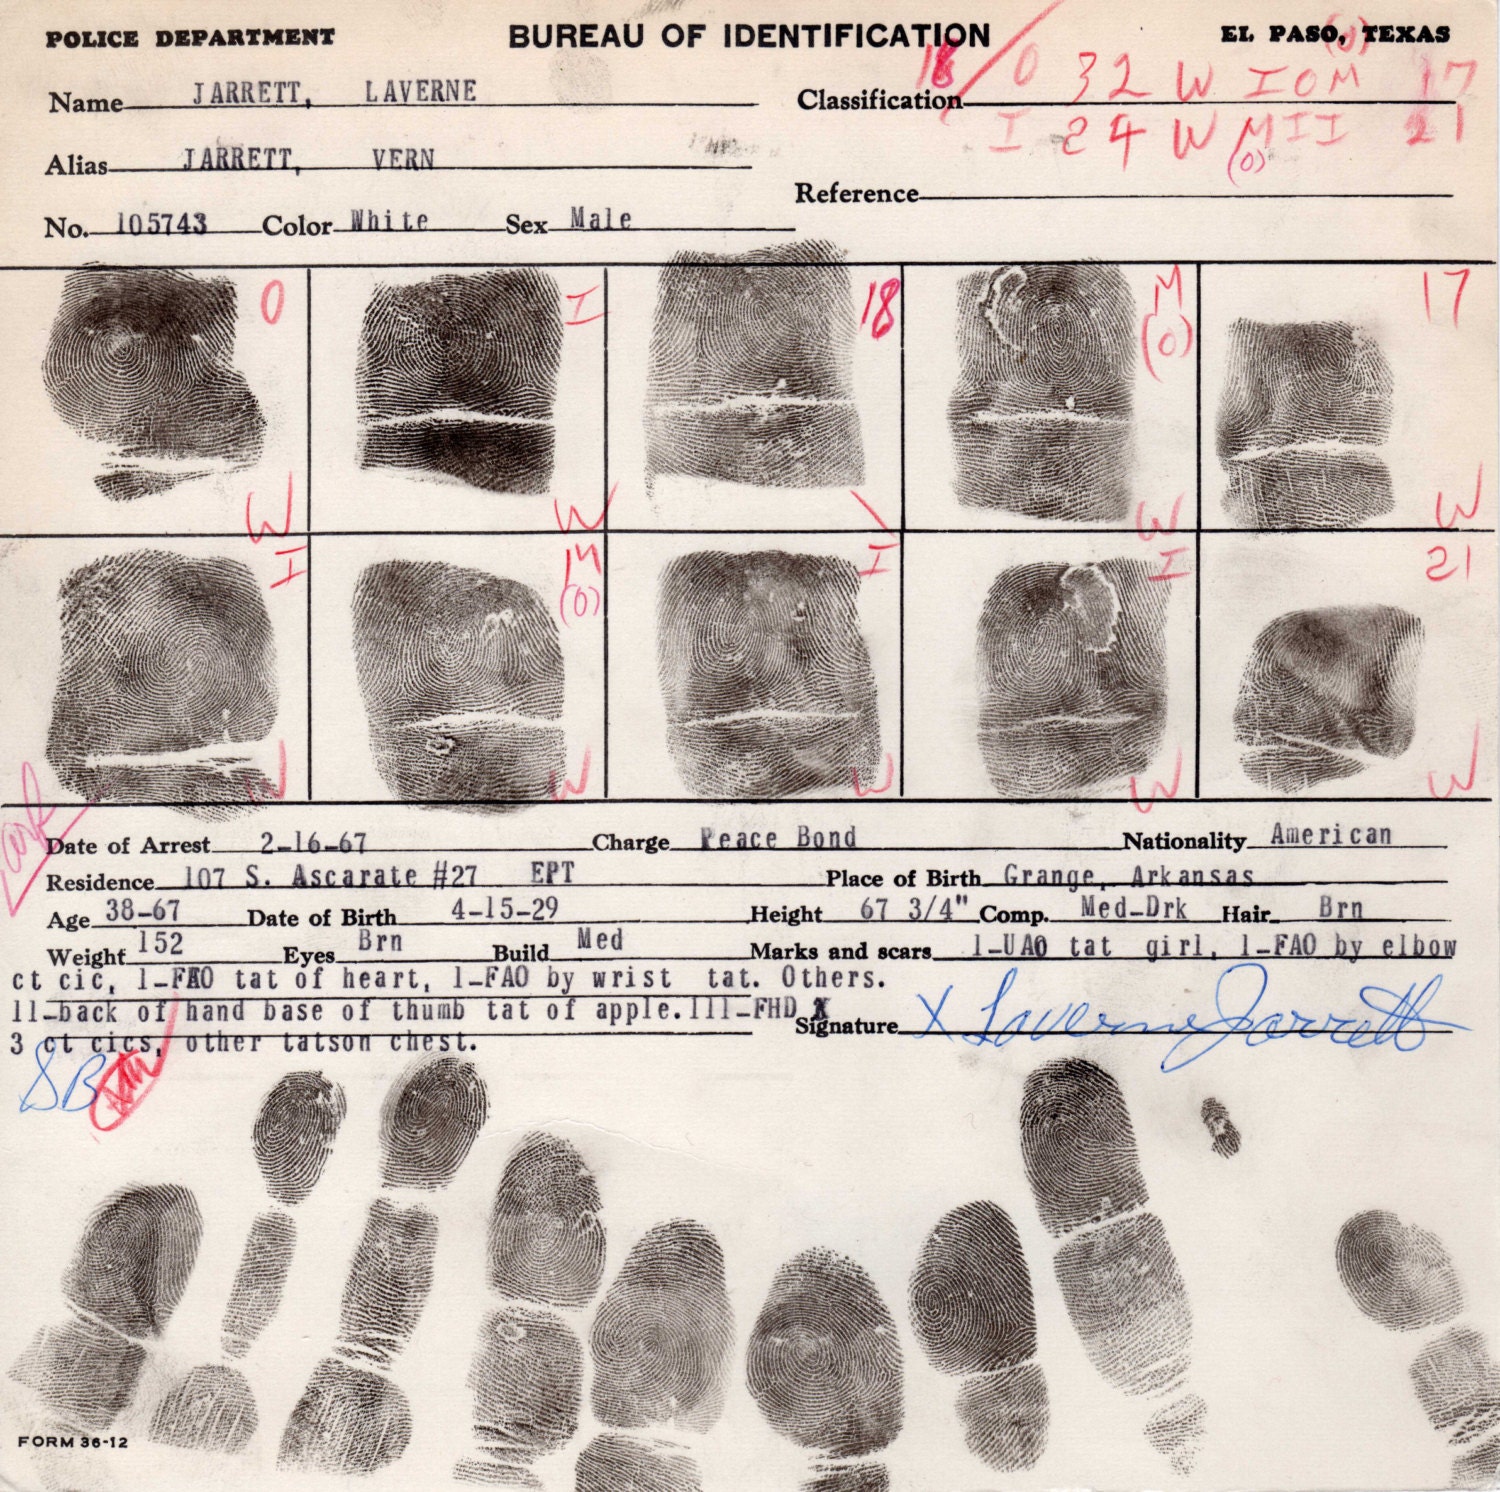 POLICE DEPARTMENT BUREAU OF IDENTIFICATION EL PASO, TEXAS
Name JARRETT, LAVERNE
Classification 18 O 32 W IOM 17
(O)
I 24 W MII 21
(O)
Alias JARRETT, VERN
Reference
No. 105743 Color White Sex Male
O I 18 M 17
(O)
W W W W
I M I I 21
(O)
W W W W W
Date of Arrest 2-16-67 Charge Peace Bond Nationality American
Residence 107 S. Ascarate #27 EPT Place of Birth Grange, Arkansas
Age 38-67 Date of Birth 4-15-29 Height 67 3/4" Comp. Med-Drk Hair Brn
Weight 152 Eyes Brn Build Med Marks and scars l-UAO tat girl, l-FAO by elbow
ct cic, l-FAO tat of heart, l-FAO by wrist tat. Others.
ll-back of hand base of thumb tat of apple. lll-FHD X
Signature X Laverne Jarrett
3 ct cics, other tatson chest.
SB
FORM 36-12